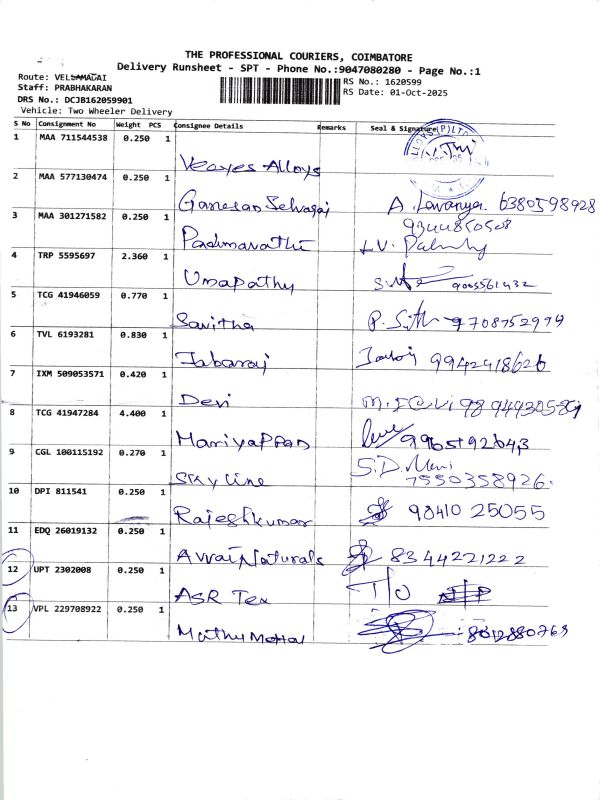 THE PROFESSIONAL COURIERS, COIMBATORE
Delivery Runsheet - SPT - Phone No.:9047080280 - Page No.:1
Route: VELLAMADAI
Staff: PRABHAKARAN
DRS No.: DCJB162059901
Vehicle: Two Wheeler Delivery
RS No.: 1620599
RS Date: 01-Oct-2025
S No Consignment No Weight PCS Consignee Details Remarks Seal & Signature
1 MAA 711544538 0.250 1
Veeyes Alloys
2 MAA 577130474 0.250 1
Ganesan Selvaraj A. Lavanya 6380598928
3 MAA 301271582 0.250 1 9344850508
Padmavathi
4 TRP 5595697 2.360 1
Umapathy 9005561432
5 TCG 41946059 0.770 1
Savitha 9708752979
6 TVL 6193281 0.830 1
Jabaraj 9942418626
7 IXM 509053571 0.420 1
Devi 9894930589
8 TCG 41947284 4.400 1
Mariyappan 9965192643
9 CGL 100115192 0.270 1 S.D. Mani
Sky line 7550358926.
10 DPI 811541 0.250 1
Rajeshkumar 98410 25055
11 EDQ 26019132 0.250 1
Avvai Naturals 8344221222
12 UPT 2302008 0.250 1
ASR Tex T/O
13 VPL 229708922 0.250 1
Mathumohal 8012880769